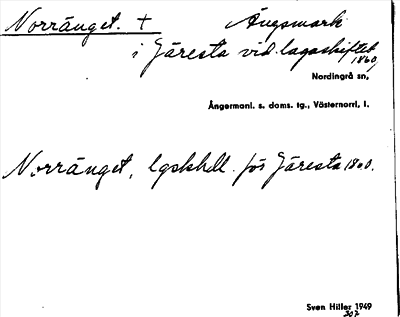 Norränget. + Ängsmark
i Järesta vid lagaskiftet
1860,
Nordingrå sn,
Ångermanl. s. doms. tg., Västernorrl. l.
Norränget, lgskhdl. för Järesta 1860.
Sven Hiller 1949
207